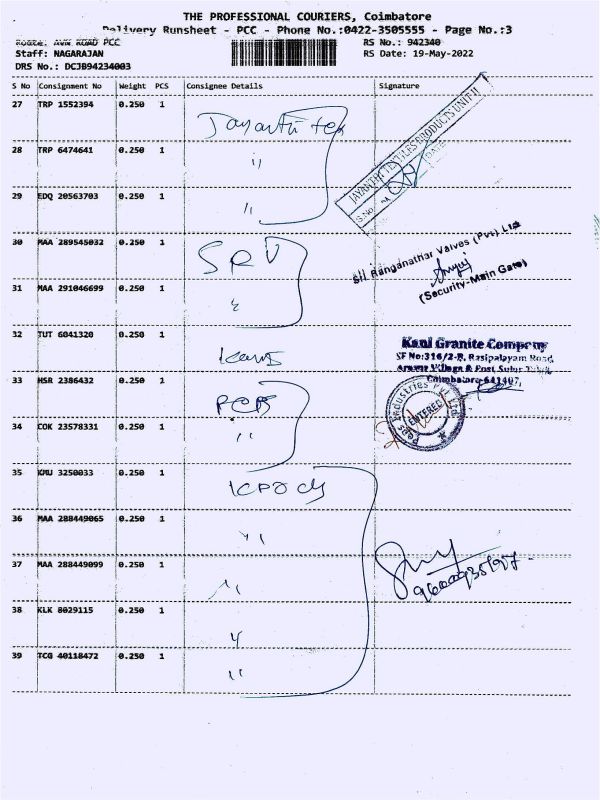 THE PROFESSIONAL COURIERS, Coimbatore
Delivery Runsheet - PCC - Phone No.:0422-3505555 - Page No.:3
ROAD PCC RS No.: 942340
Staff: NAGARAJAN RS Date: 19-May-2022
DRS No.: DCJB94234003
S No Consignment No Weight PCS Consignee Details Signature
27 TRP 1552394 0.250 1 Jayanthi tex
JAYANTHI TEXTILES PRODUCTS UNIT II
S.No. DATE:
28 TRP 6474641 0.250 1 "
29 EDQ 20563703 0.250 1 "
30 MAA 289545032 0.250 1 SRV
Sri Ranganathar Valves (Pvt) Ltd
(Security-Main Gate)
31 MAA 291046699 0.250 1 "
32 TUT 6041320 0.250 1
Kani Granite Company
SF No:316/2-B, Rasipalayam Road,
Arasur Village & Post, Sulur Taluk,
Coimbatore-641407.
33 HSR 2386432 0.250 1 PEPS
Peps Industries Pvt Ltd
ENTERED
34 COK 23578331 0.250 1 "
35 KMU 3250033 0.250 1
36 MAA 288449065 0.250 1 "
37 MAA 288449099 0.250 1 "
38 KLK 8029115 0.250 1 "
39 TCG 40118472 0.250 1 "